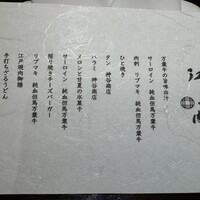 万葉牛の旨味出汁
サーロイン 純血但馬万葉牛
肉刺 リブマキ 純血但馬万葉牛
ひと焼き
タン 神谷商店
ハラミ 神谷商店
メロンと甘夏の氷菓子
サーロイン 純血但馬万葉牛
照り焼きチーズバーガー
リブマキ 純血但馬万葉牛
江戸焼肉御膳
手打ちざるうどん